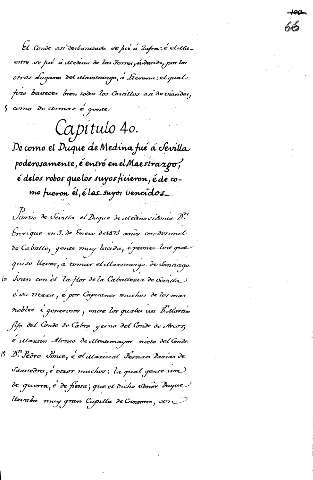 102
66
El Conde así desbaratado se fué á Zafra: é el Ma-
estre se fué á Medina de las Torres, y de ende, por los
otros lugares del Maestrazgo, á Llerena: el qual
fizo bastecer bien todos los Castillos así de viandas,
5 como de armas é gente.
Capítulo 40.
De como el Duque de Medina fué á Sevilla
poderosamente, é entró en el Maestrazgo,
é de los robos que los suyos ficieron, é de co-
mo fueron él, é los suyos vencidos.
Partió de Sevilla el Duque de Medina Sidonia Dn.
Enrique en 3 de Enero de 1473 años con dos mil
de Caballo, gente muy lucida, é peones los que
quiso llevar, á tomar el Maestrazgo de Santiago
10 Iban con él la flor de la Caballería de Sevilla
é su tierra, é por Capitanes muchos de los mas
nobles é generosos, entre los quales un Dn. Martin
fijo del Conde de Cabra yerno del Conde de Arcos,
é Martin Alonso de Montemayor nieto del Conde
15 Dn. Pedro Ponce, é el Mariscal Fernan Darias de
Saavedra, é otros muchos: la qual gente iva
de guerra, é de fiesta; que el dicho Señor Duque
llevaba muy gran Capilla de Cantores, con